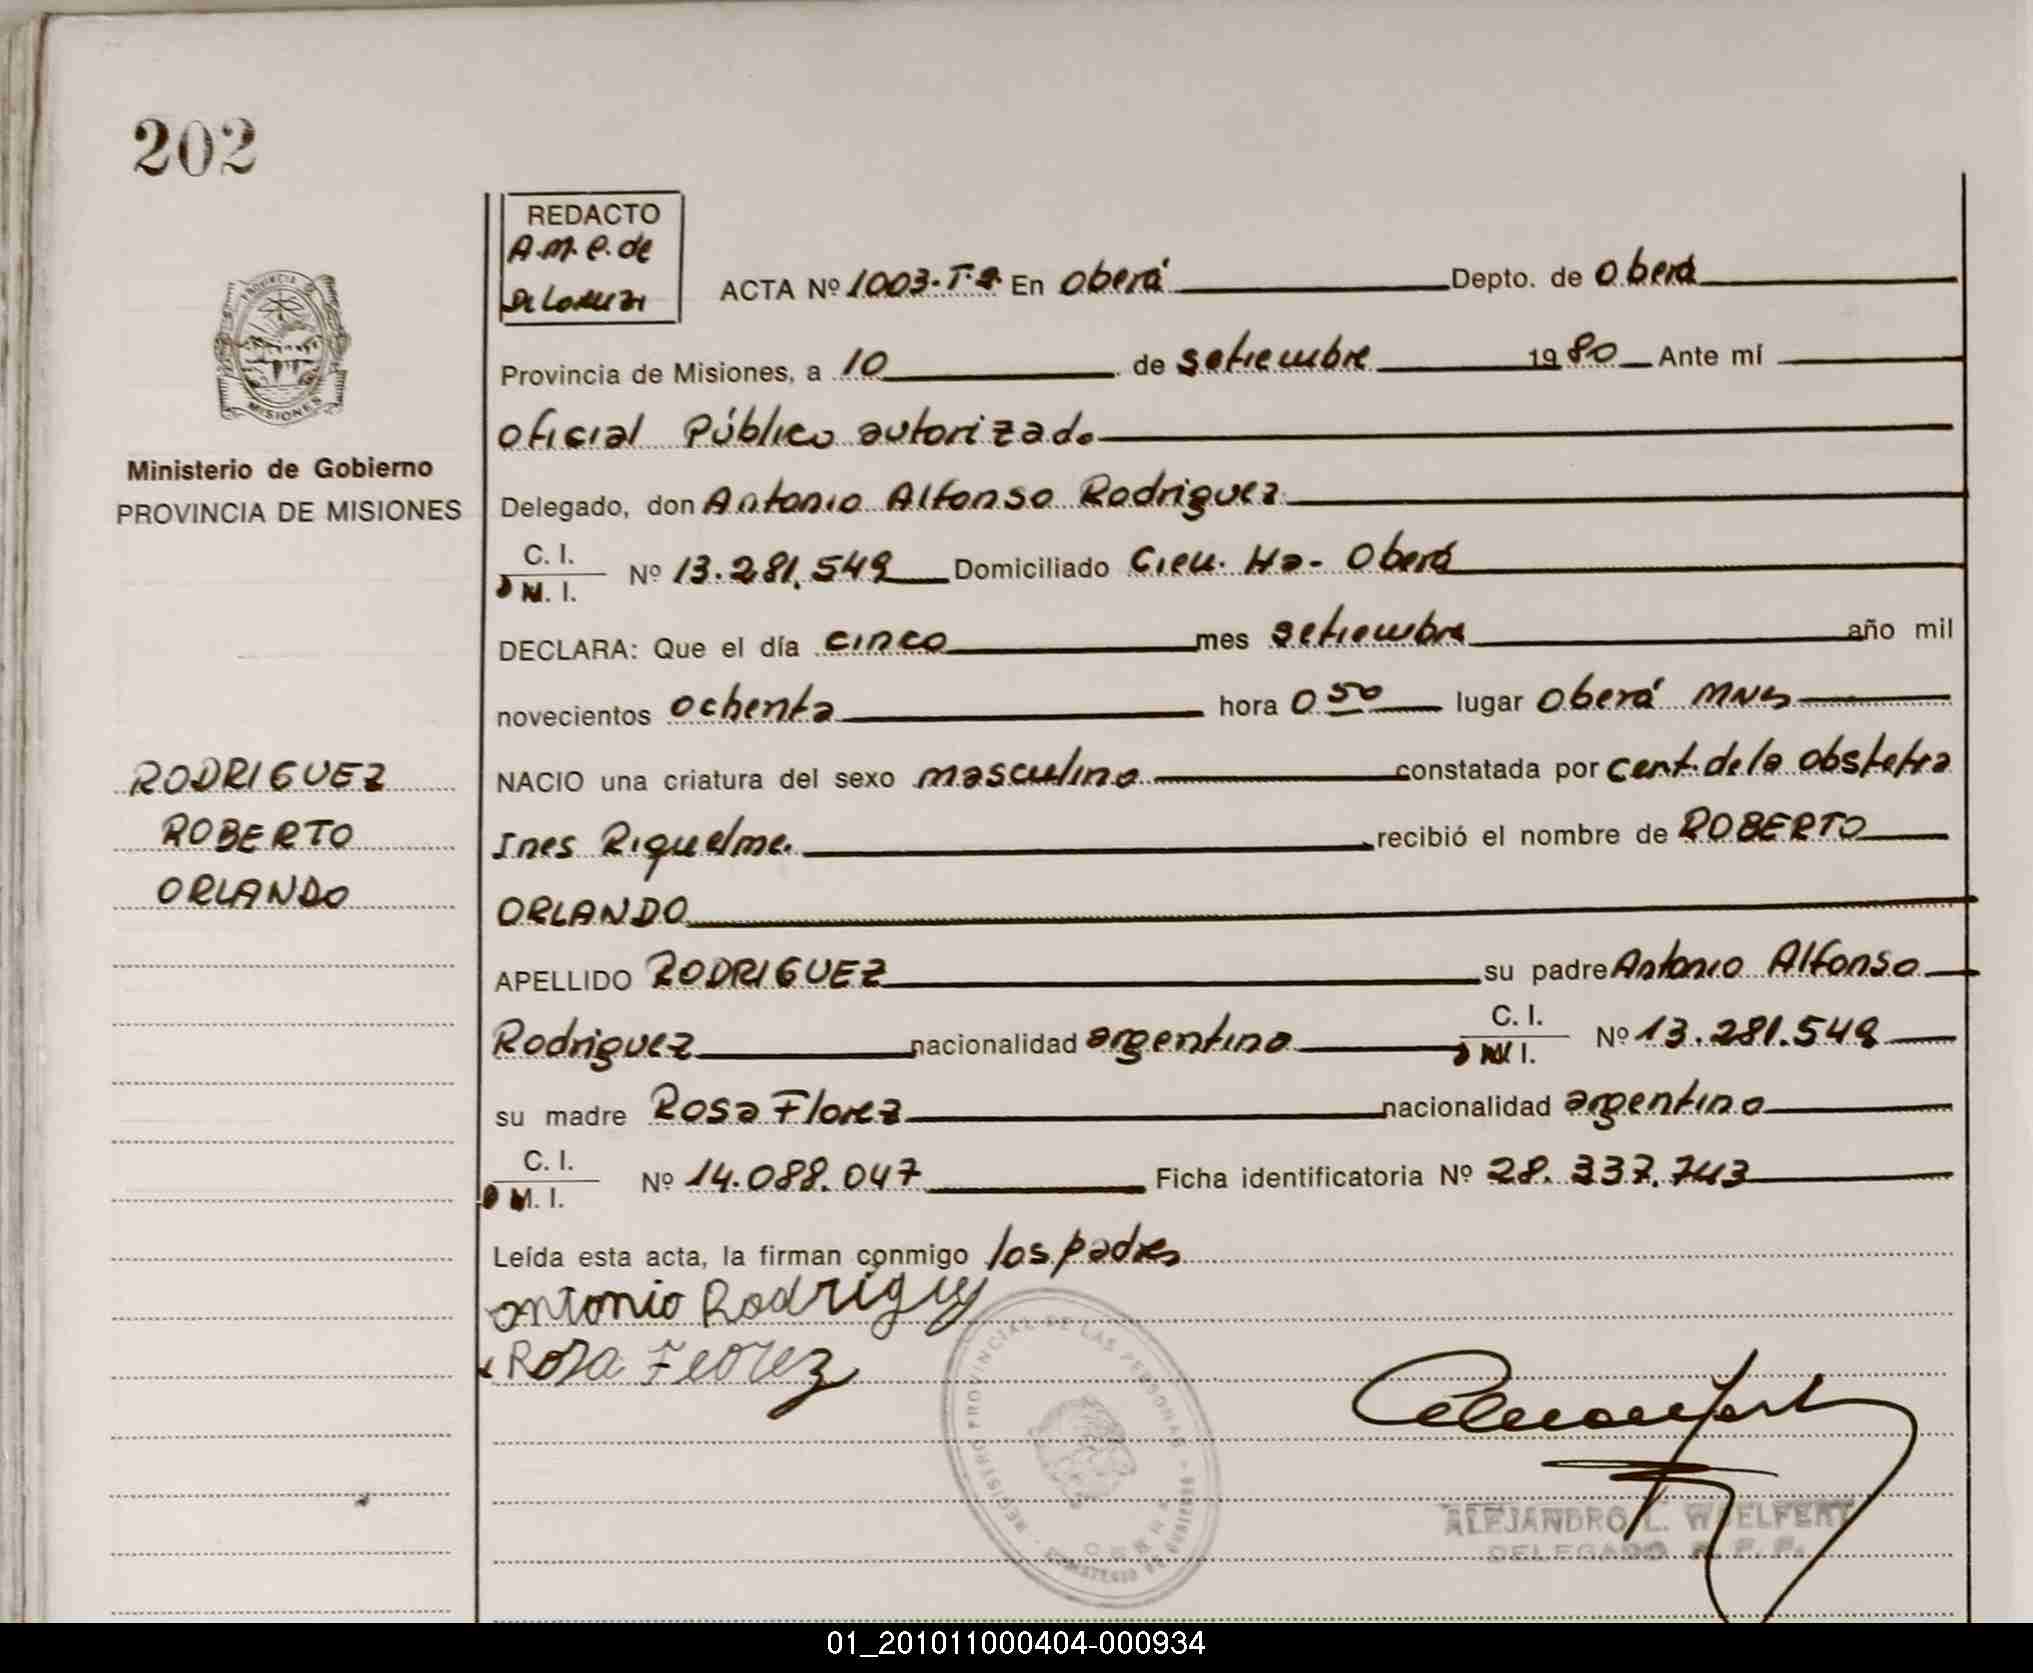 202
REDACTO
A.M.P. de
De Lorenzi
ACTA Nº 1003-T-2 En Oberá Depto. de Oberá
Provincia de Misiones, a 10 de setiembre 1980 Ante mí
Oficial Público autorizado
Ministerio de Gobierno
PROVINCIA DE MISIONES
Delegado, don Antonio Alfonso Rodriguez
C. I.
D N. I. Nº 13.281.549 Domiciliado Cieu. Ha- Oberá
DECLARA: Que el día cinco mes setiembre año mil
novecientos ochenta hora 0 50 lugar Oberá MNES
RODRIGUEZ
ROBERTO
ORLANDO
NACIO una criatura del sexo masculino constatada por cert. de la obstetra
Ines Riquelme. recibió el nombre de ROBERTO
ORLANDO
APELLIDO RODRIGUEZ su padre Antonio Alfonso
Rodriguez nacionalidad argentino C. I. D N I. Nº 13.281.549
su madre Rosa Florez nacionalidad argentina
C. I.
D N. I. Nº 14.088.047 Ficha identificatoria Nº 28.337.743
Leída esta acta, la firman conmigo los padres
antonio Rodriguez
Rosa Florez
REGISTRO PROVINCIAL DE LAS PERSONAS - MINISTERIO DE GOBIERNO
OBERA
ALEJANDRO L. WOELFERT
DELEGADO R. P. P.
PROVINCIA
MISIONES
01_201011000404-000934